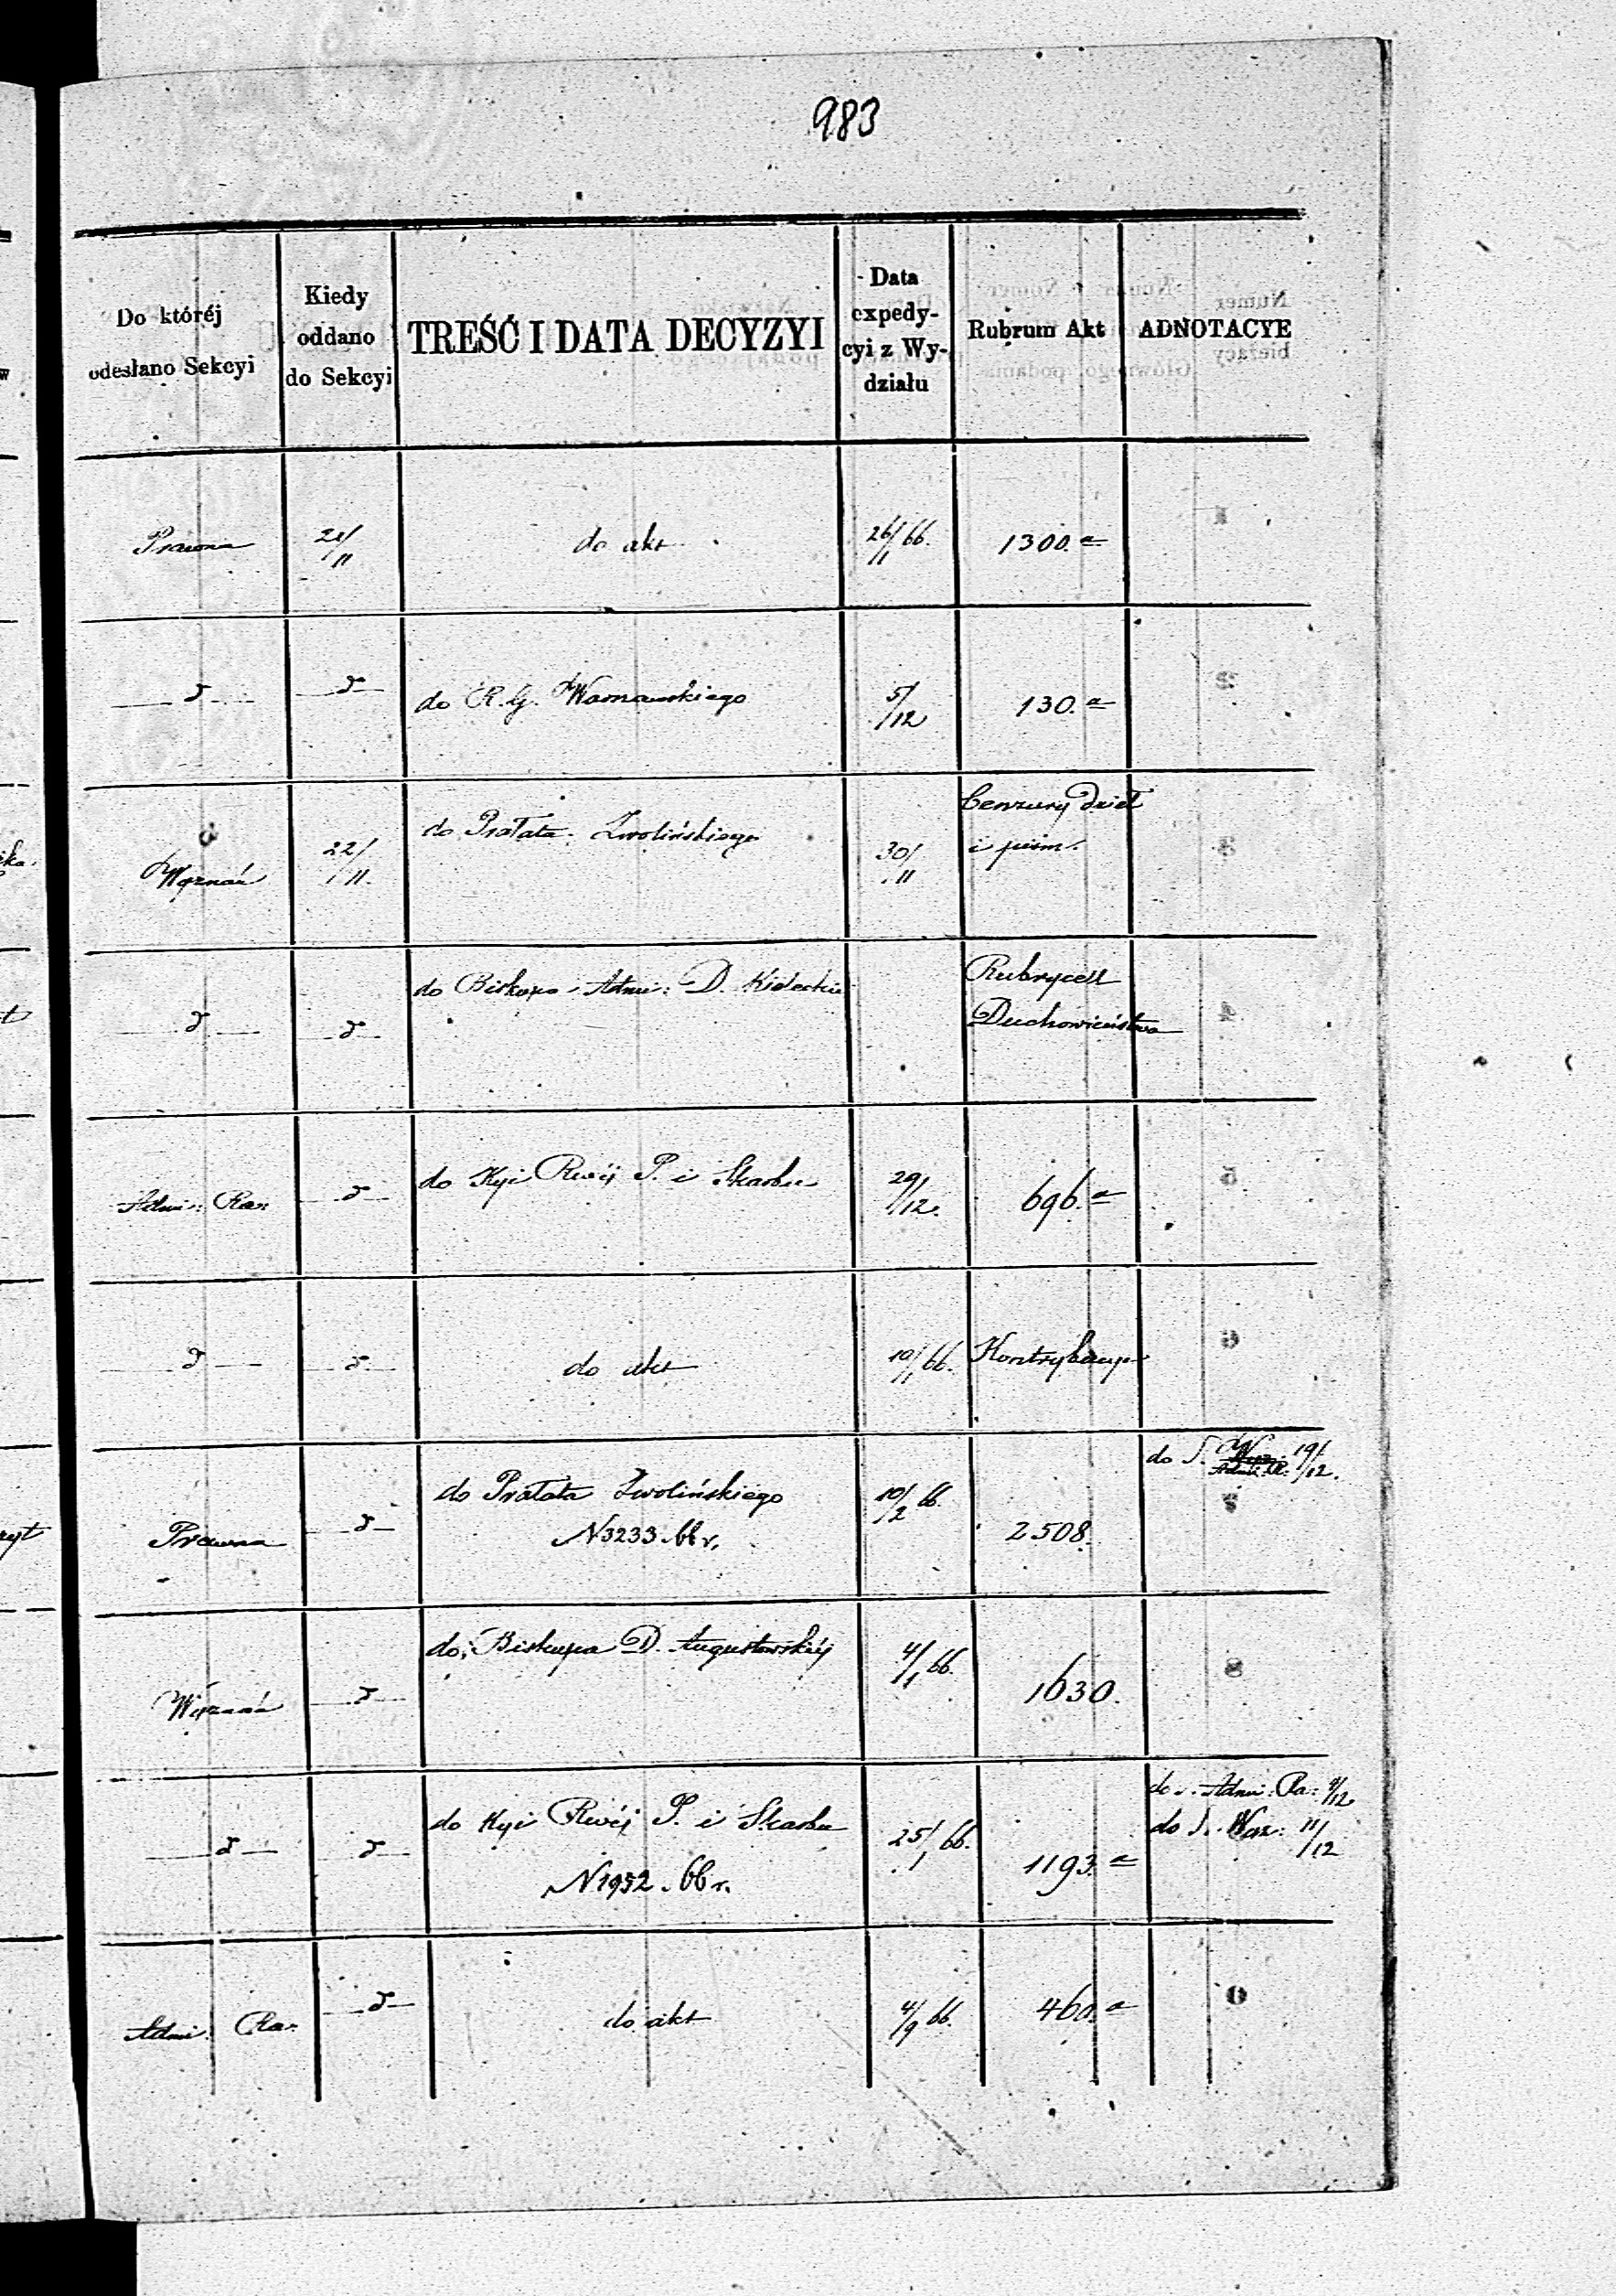 983
Do któréj
odesłano Sekcyi
Kiedy
oddano
do Sekcyi
TREŚĆ I DATA DECYZYI
Data
expedy-
cyi z Wy-
działu
Rubrum Akt
ADNOTACYE
Prawna 21/11 do akt 26/11 66. 1300.a
d d do R. G. Warnawskiego 5/12 130.a
Wyznań 22/11 do Prałata Zwolińskiego 30/11 Cenzury Dzieł
i pism.
d d do Biskupa Admi: D. Kieleckiej Rubrycell
Duchowieństwa
Admi: Ra: d do Kyi Rwéj P. i Skarbu 29/12. 696.a
d d do akt 10/1 66. Kontrybucye
Prawna d do Prałata Zwolińskiego 10/2 66. 2508. do S. Admi: R: 19/12.
N 3233.66 r.
Wyznań d do Biskupa D. Augustowskiéj 4/1 66. 1630.
d d do Kyi Rwéj P. i Skarbu 25/1 66. 1193.a do S. Admi: Ra: 9/12
N 1952.66 r. do S. Wyz: 11/12
Admi: Ra: d do akt 4/9 66. 460.a